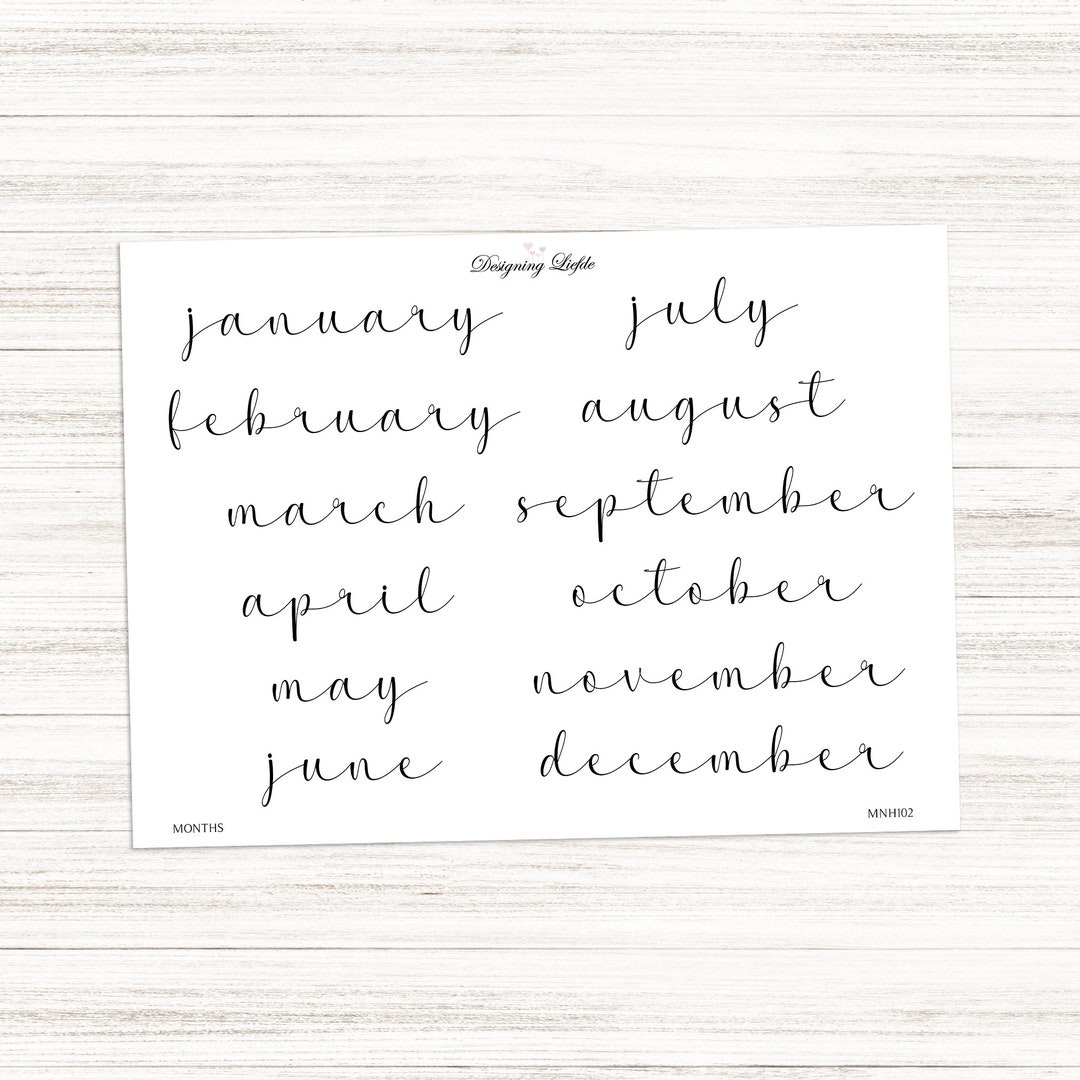 Designing Liefde
january
february
march
april
may
june
july
august
september
october
november
december
MONTHS
MNH102